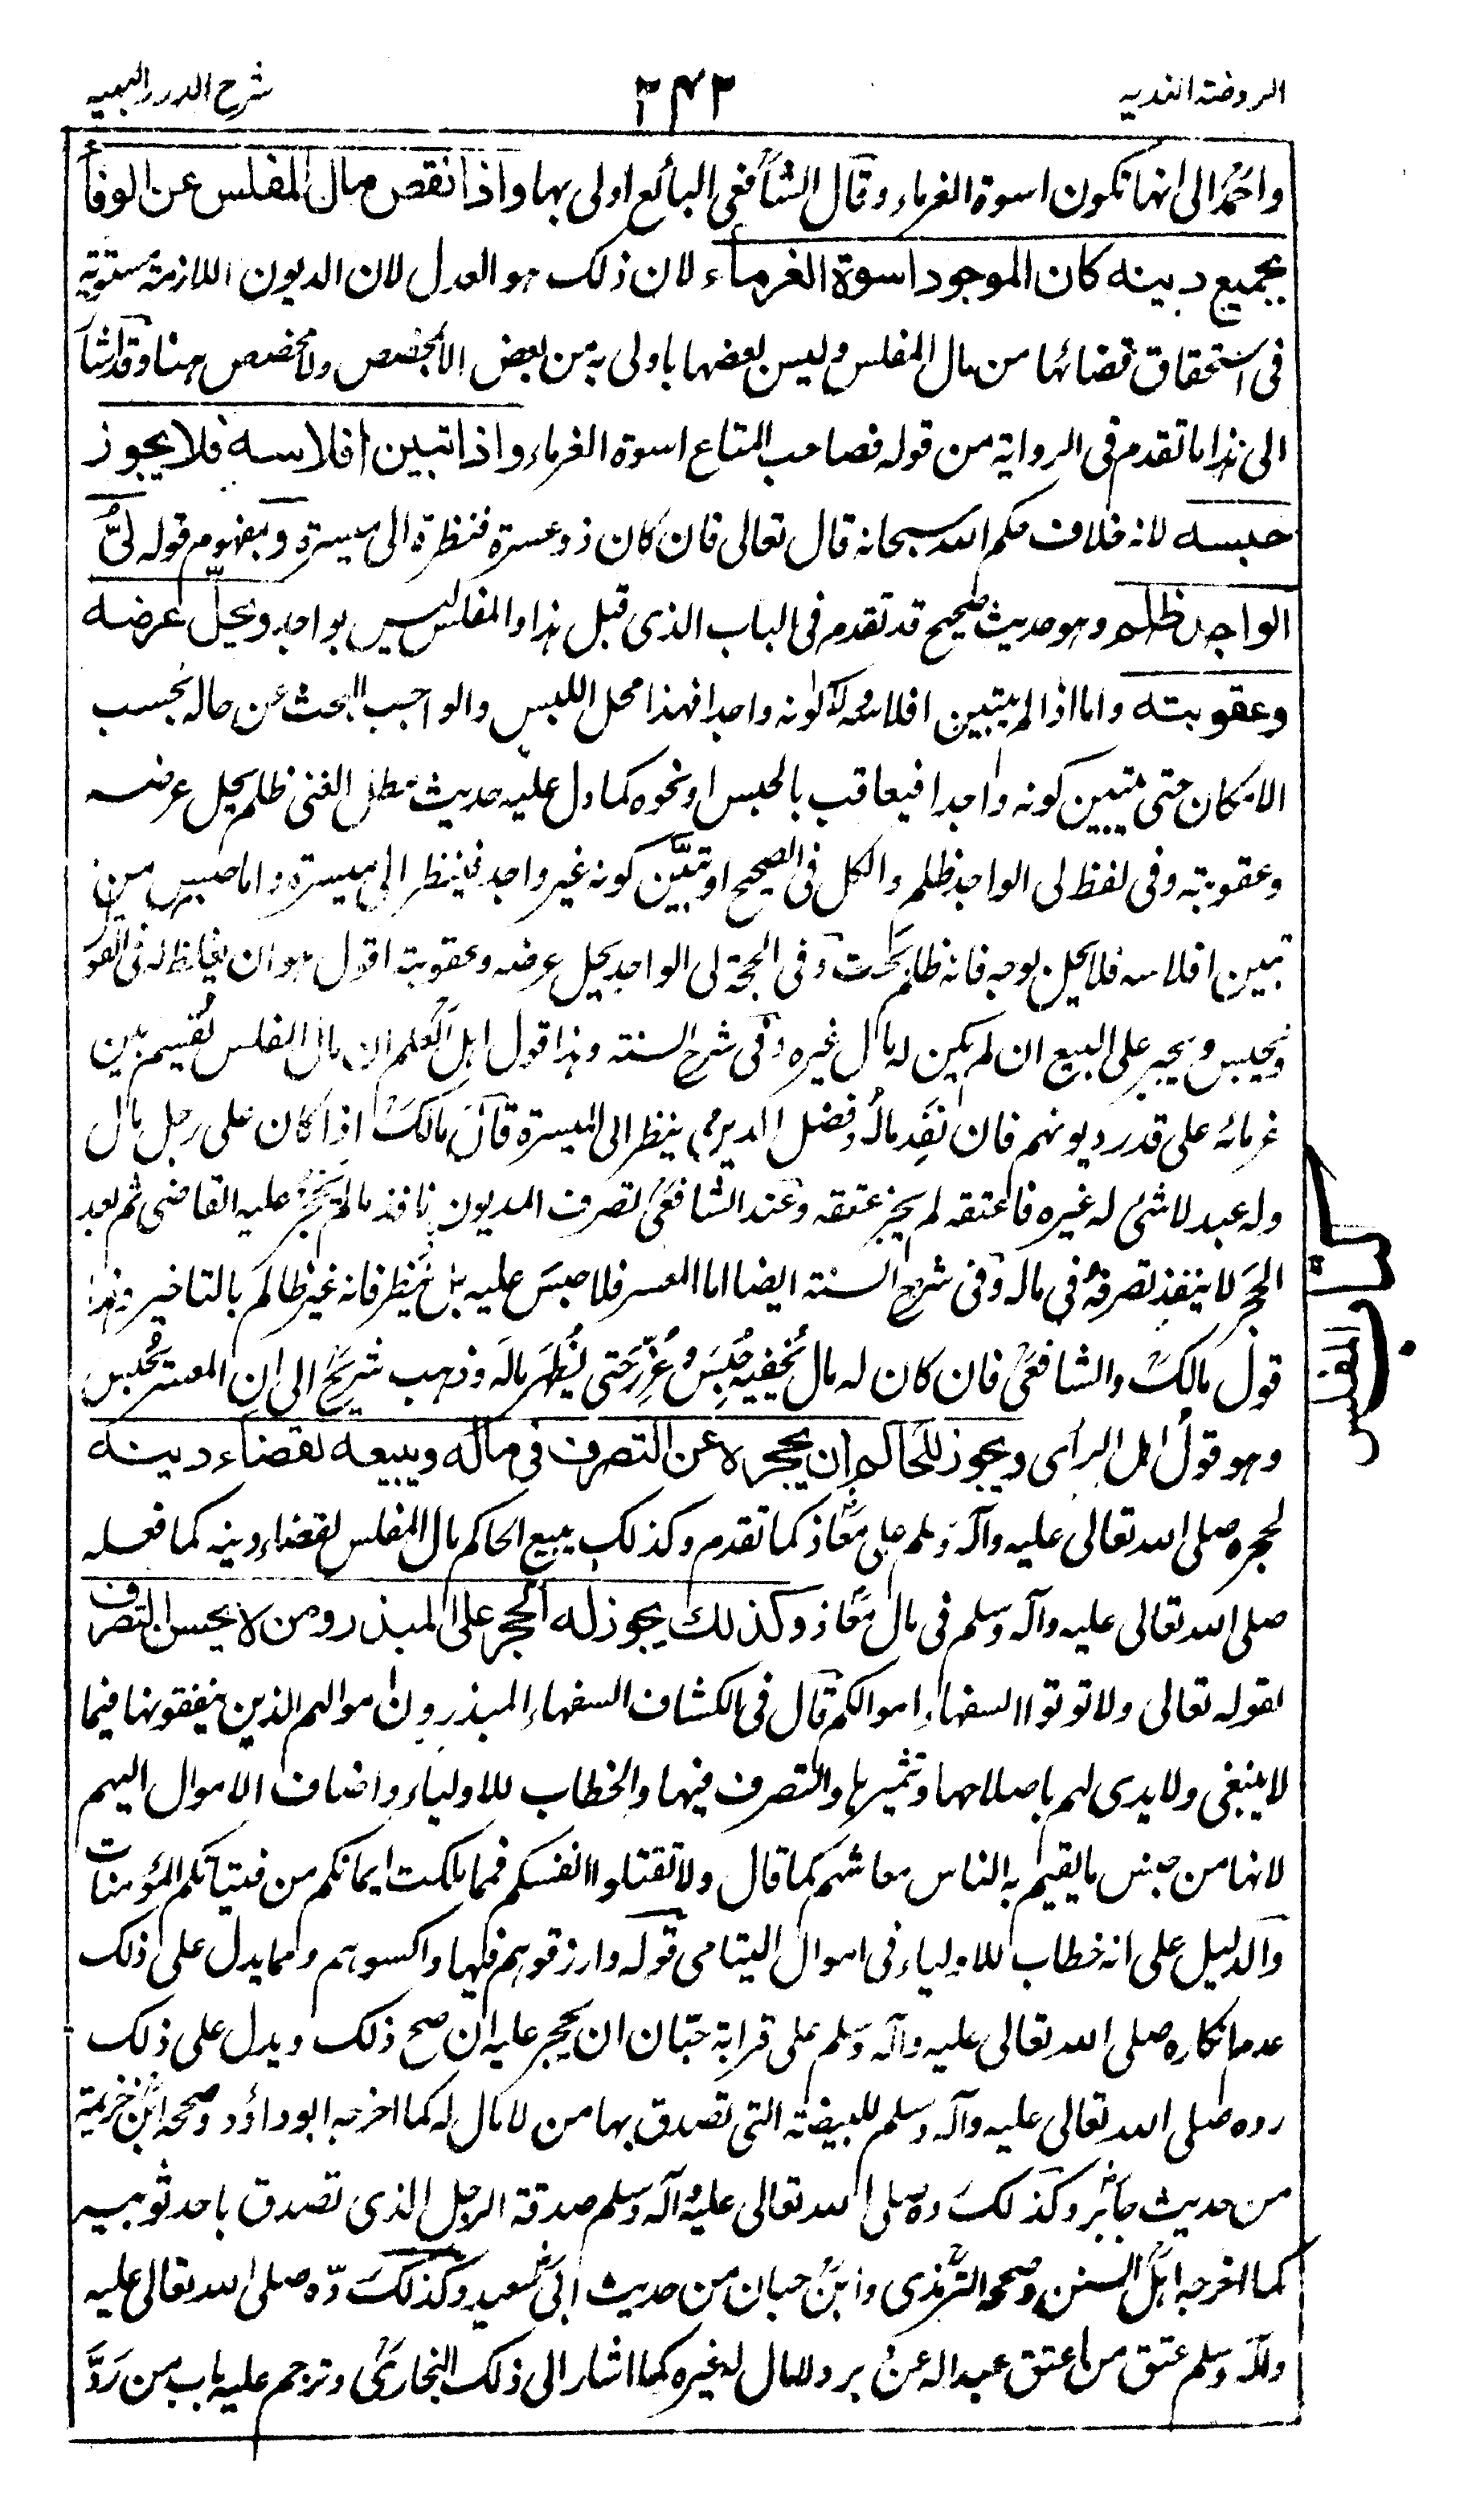 الروضة الندية
٣٤٢
شرح الدرر البهية
واحمد الى انها تكون اسوة الغرماء وقال الشافعي البائع اولى بها واذا نقص مال المفلس عن الوفاء
بجميع دينه كان الموجود اسوة الغرماء لان ذلك هو العدل لان الديون اللازمة مستوية
فى استحقاق قضائها من مال المفلس وليس بعضها باولى به من بعض الا لمخصص ولا مخصص هنا وقد اشار
الى هذا ما تقدم فى الرواية من قوله فصاحب المتاع اسوة الغرماء واذا تبين افلاسه فلا يجوز
حبسه لانه خلاف حكم الله سبحانه قال تعالى فان كان ذو عسرة فنظرة الى ميسرة وبمفهوم قوله لىّ
الواجد ظلم وهو حديث صحيح قد تقدم فى الباب الذى قبل هذا والمفلس ليس بواجد ويحلّ عرضه
وعقوبته واما اذا لم يتبين افلاسه ولا كونه واجدا فهذا محل اللبس والواجب البحث عن حاله بحسب
الامكان حتى يتبين كونه واجدا فيعاقب بالحبس او نحوه كما دل عليه حديث مطل الغنى ظلم يحل عرضه
وعقوبته وفى لفظ لى الواجد ظلم والكل فى الصحيح او تبيّن كونه غير واجد فينظر الى ميسرة واما حبس من
تبين افلاسه فلا يحل بوجه فانه ظلم بحت وفى الحجة لى الواجد يحل عرضه وعقوبته اقول هو ان يغلظ له فى القول
ويحبس ويجبر على البيع ان لم يكن له مال غيره وفى شرح السنة وهذا قول اهل العلم ان مال المفلس يقسم بين
غرمائه على قدر ديونهم فان نَفِد مالُه وفضل الدين ينظر الى الميسرة قال مالك اذا كان على رجل مال
وله عبد لا شئ له غيره فاعتقه لم يجز عتقه وعند الشافعى تصرف المديون نافذ ما لم يحجر عليه القاضى ثم بعد
الحجر لا ينفذ تصرفه فى ماله وفى شرح السنة ايضا اما المعسر فلا حبس عليه بل ينظر فانه غير ظالم بالتاخير وهذا
قول مالك والشافعى فان كان له مال يُخفيه حُبِسَ وعُزِّر حتى يُظهر ماله وذهب شريح الى ان المعسر يحبس
وهو قول اهل الراى ويجوز للحاكم ان يحجره عن التصرف فى ماله ويبيعه لقضاء دينه
لحجره صلى الله تعالى عليه وآله وسلم على معاذ كما تقدم وكذلك يبيع الحاكم مال المفلس لقضاء دينه كما فعله
صلى الله تعالى عليه وآله وسلم فى مال معاذ وكذلك يجوز له الحجر على المبذر ومن لا يحسن التصرف
لقوله تعالى ولا توتوا السفهاء اموالكم قال فى الكشاف السفهاء المبذرون اموالهم الذين ينفقونها فيما
لا ينبغى ولا يدى لهم باصلاحها وتثميرها والتصرف فيها والخطاب للاولياء واضاف الاموال اليهم
لانها من جنس ما يقيم به الناس معاشهم كما قال ولا تقتلوا انفسكم فمما ملكت ايمانكم من فتياتكم المؤمنات
والدليل على انه خطاب للاولياء فى اموال اليتامى قوله وارزقوهم فيها واكسوهم ومما يدل على ذلك
عدم انكاره صلى الله تعالى عليه وآله وسلم على قرابة حبّان ان يحجر عليه ان صح ذلك ويدل على ذلك
رده صلى الله تعالى عليه وآله وسلم للبيضة التى تصدق بها من لا مال له كما اخرجه ابو داؤد وصححه ابن خزيمة
من حديث جابر وكذلك رده صلى الله تعالى عليه وآله وسلم صدقة الرجل الذى تصدق باحد ثوبيه
كما اخرجه اهل السنن وصححه الترمذى وابن حبان من حديث ابى سعيد وكذلك ردّه صلى الله تعالى عليه
وآله وسلم عتق من اعتق عبدا له عن دبر ولا مال له غيره كما اشار الى ذلك البخارى وترجم عليه باب من رَدَّ